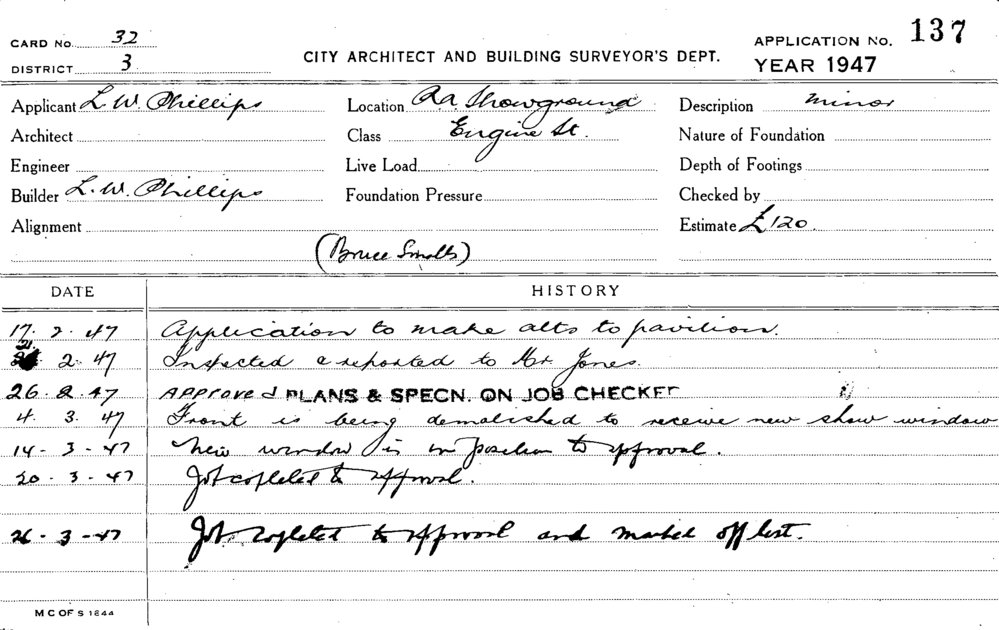 CARD No. 32
DISTRICT 3
CITY ARCHITECT AND BUILDING SURVEYOR'S DEPT.
APPLICATION No. 137
YEAR 1947
Applicant L. W. Phillips Location RA Showground Description minor
Architect Class Engine St. Nature of Foundation
Engineer Live Load Depth of Footings
Builder L. W. Phillips Foundation Pressure Checked by
Alignment Estimate £120
(Bruce Smalls)
DATE HISTORY
17. 2. 47 Application to make alts to pavilion.
21. 2. 47 Inspected & reported to Mr. Jones.
26. 2. 47 APPROVED PLANS & SPECN. ON JOB CHECKED
4. 3. 47 Front is being demolished to receive new show window
14 - 3 - 47 New window is in position to approval.
20 - 3 - 47 Job copleted to approval.
26 - 3 - 47 Job copleted to approval and marked off list.
M C OF S 1844